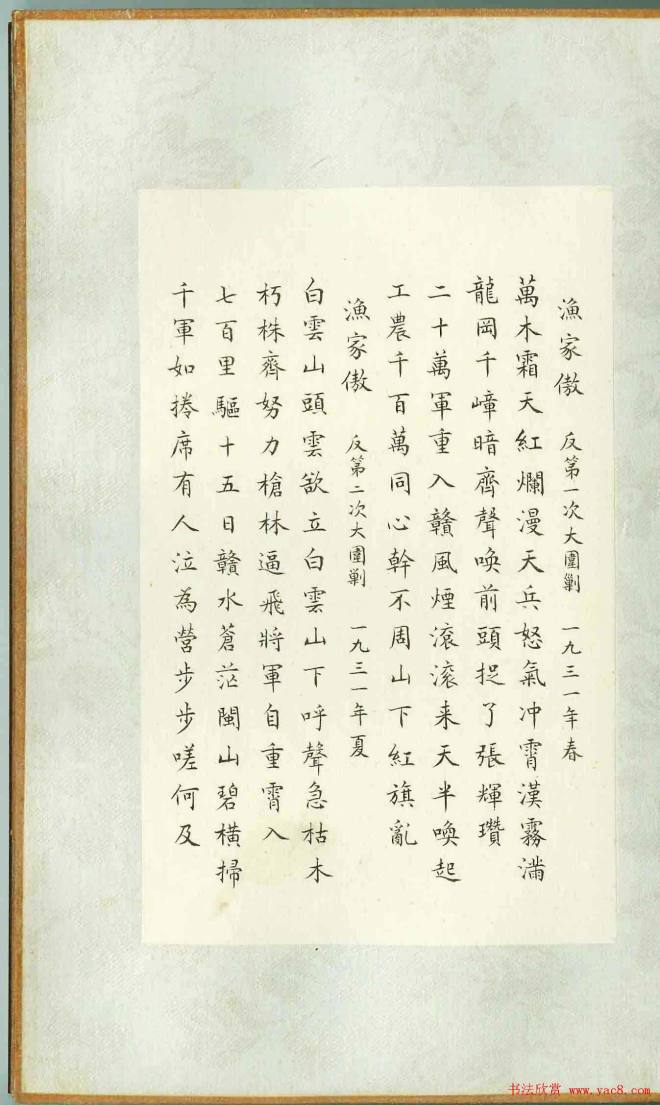 漁家傲 反第一次大圍剿 一九三一年春
萬木霜天紅爛漫天兵怒氣冲霄漢霧滿
龍岡千嶂暗齊聲喚前頭捉了張輝瓚
二十萬軍重入贛風煙滚滚来天半喚起
工農千百萬同心幹不周山下紅旗亂
漁家傲 反第二次大圍剿 一九三一年夏
白雲山頭雲欲立白雲山下呼聲急枯木
朽株齊努力槍林逼飛將軍自重霄入
七百里驅十五日贛水蒼茫閩山碧橫掃
千軍如捲席有人泣為營步步嗟何及
书法欣赏 www.yac8.com